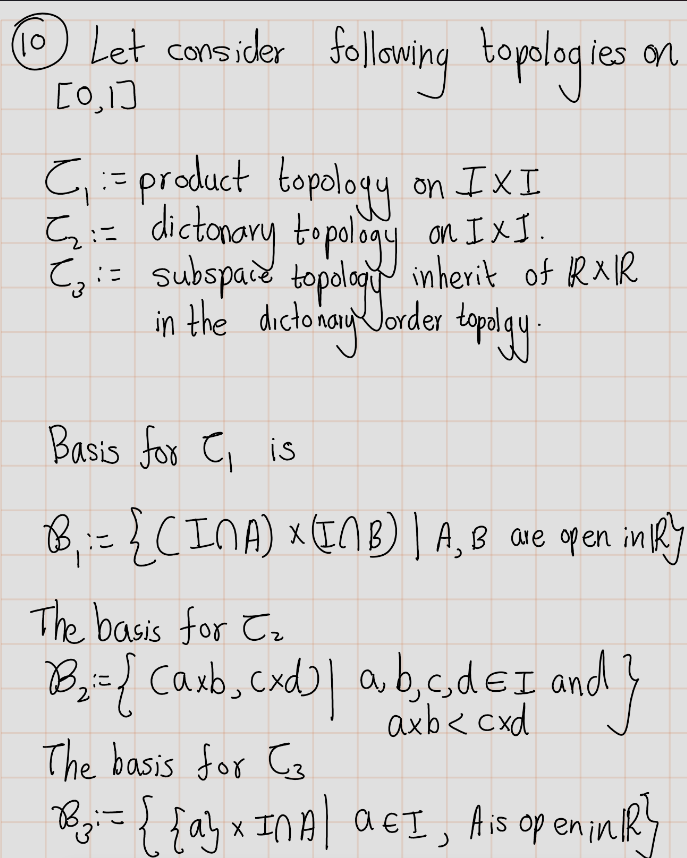 ⑩ Let consider following topologies on
[0,1]
τ₁ := product topology on I×I
τ₂ := dictonary topology on I×I.
τ₃ := subspace topology inherit of ℝ×ℝ
in the dictonary order topolgy.
Basis for τ₁ is
ℬ₁ := {(I∩A) × (I∩B) | A, B are open in ℝ}
The basis for τ₂
ℬ₂ := { (a×b, c×d) | a, b, c, d ∈ I and }
a×b < c×d
The basis for τ₃
ℬ₃ := { {a} × I∩A | a ∈ I, A is open in ℝ}